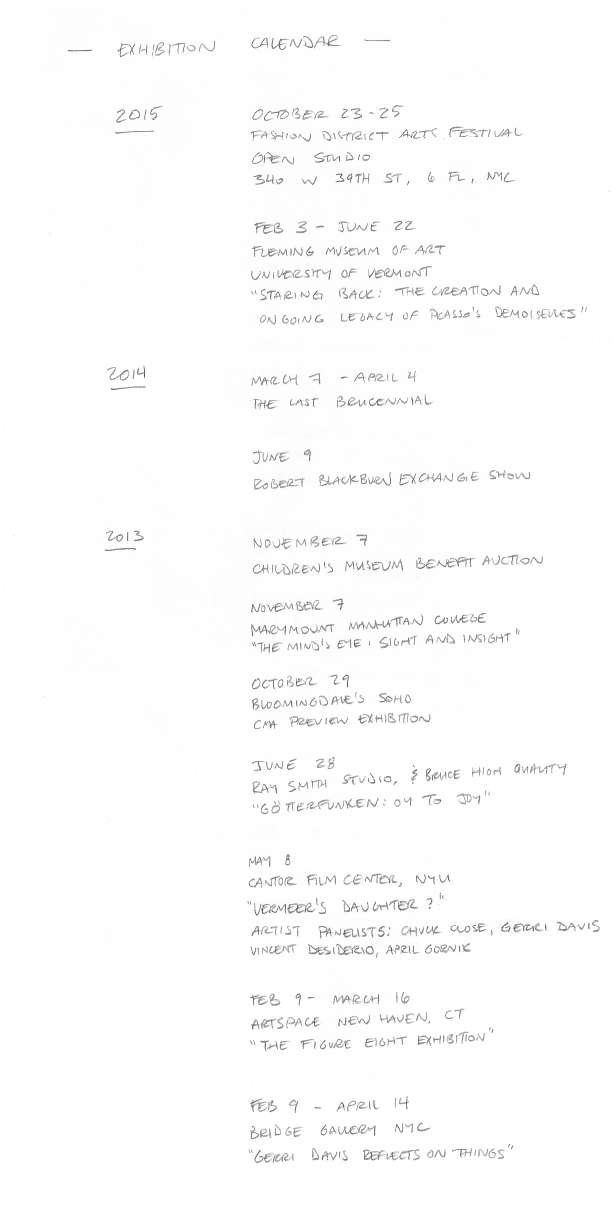 — EXHIBITION CALENDAR —
2015
OCTOBER 23-25
FASHION DISTRICT ARTS FESTIVAL
OPEN STUDIO
340 W 39TH ST, 6 FL, NYC
FEB 3 - JUNE 22
FLEMING MUSEUM OF ART
UNIVERSITY OF VERMONT
"STARING BACK: THE CREATION AND
ONGOING LEGACY OF PICASSO'S DEMOISELLES"
2014
MARCH 7 - APRIL 4
THE LAST BRUCENNIAL
JUNE 9
ROBERT BLACKBURN EXCHANGE SHOW
2013
NOVEMBER 7
CHILDREN'S MUSEUM BENEFIT AUCTION
NOVEMBER 7
MARYMOUNT MANHATTAN COLLEGE
"THE MIND'S EYE: SIGHT AND INSIGHT"
OCTOBER 29
BLOOMINGDALE'S SOHO
CMA PREVIEW EXHIBITION
JUNE 28
RAY SMITH STUDIO, & BRUCE HIGH QUALITY
"GÖTTERFUNKEN: OY TO JOY"
MAY 8
CANTOR FILM CENTER, NYU
"VERMEER'S DAUGHTER?"
ARTIST PANELISTS: CHUCK CLOSE, GERRI DAVIS
VINCENT DESIDERIO, APRIL GORNIK
FEB 9 - MARCH 16
ARTSPACE NEW HAVEN, CT
"THE FIGURE EIGHT EXHIBITION"
FEB 9 - APRIL 14
BRIDGE GALLERY NYC
"GERRI DAVIS REFLECTS ON THINGS"